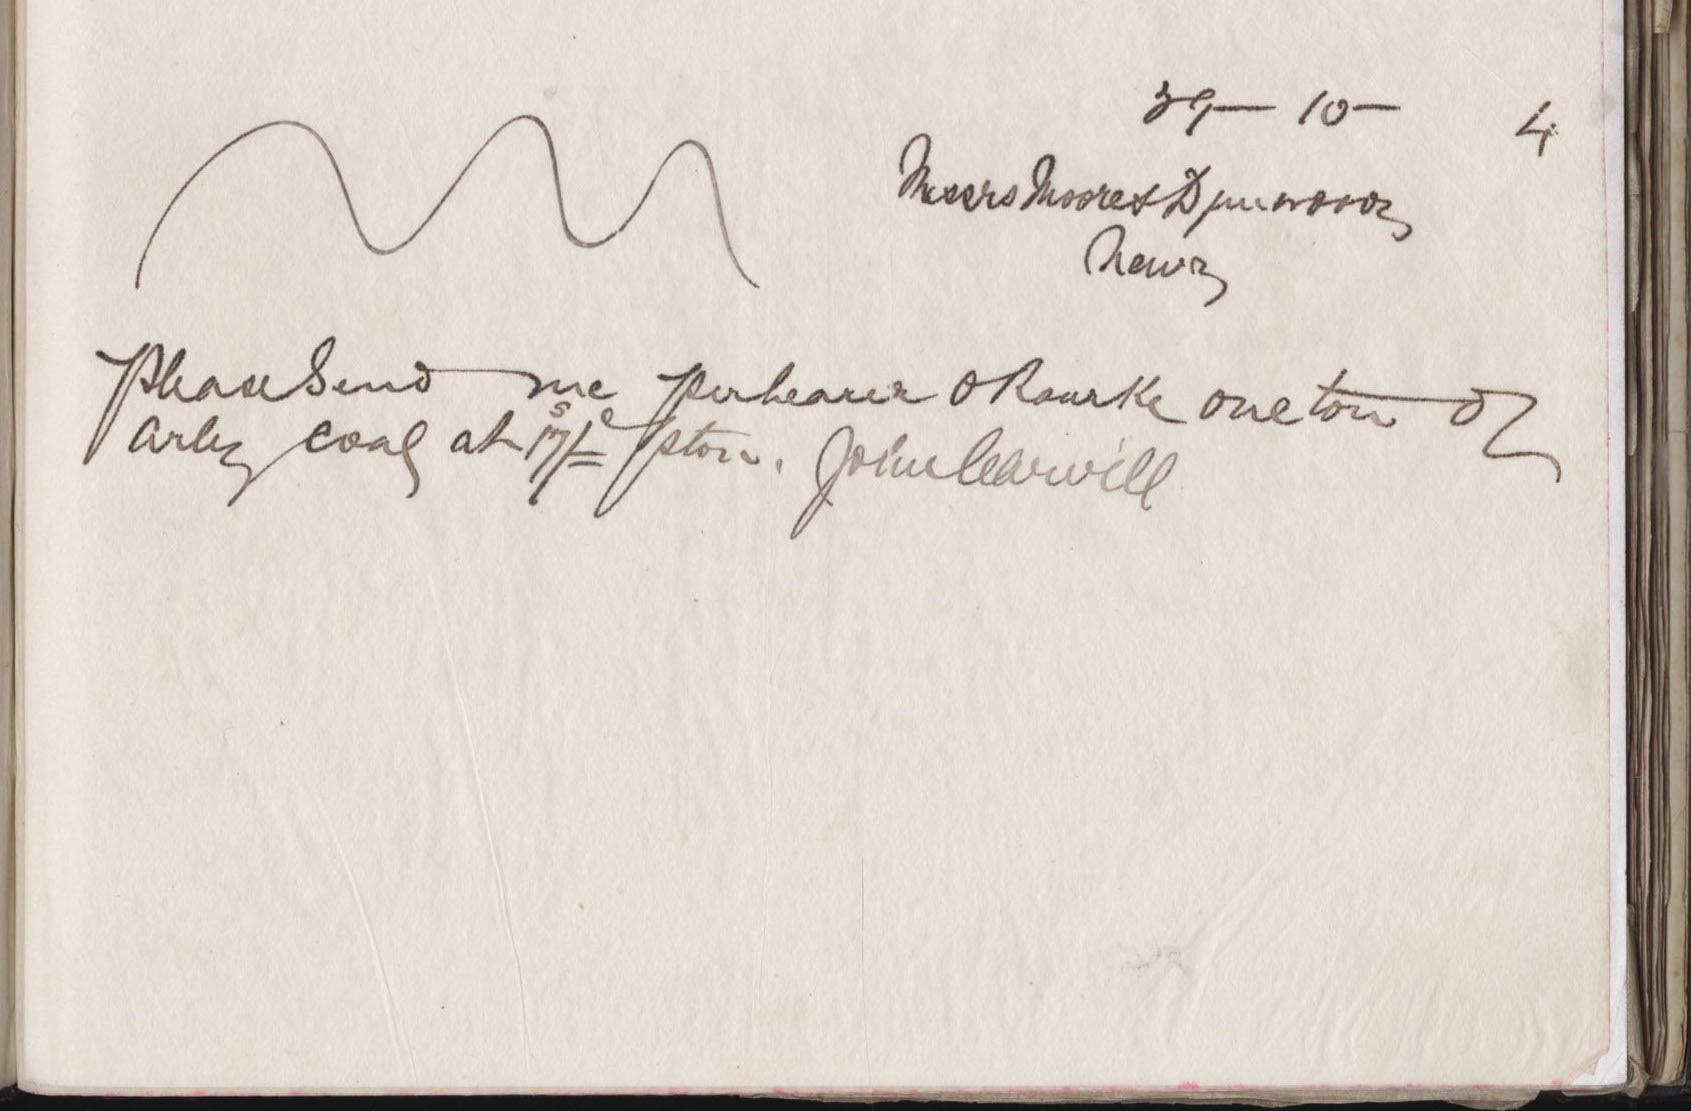 29 — 10 — 4
Messrs Moore & Dinwoody
Newry
Please Send me per bearer O Rourke one ton of
Arley coal at 17/= p ton. John Carvill